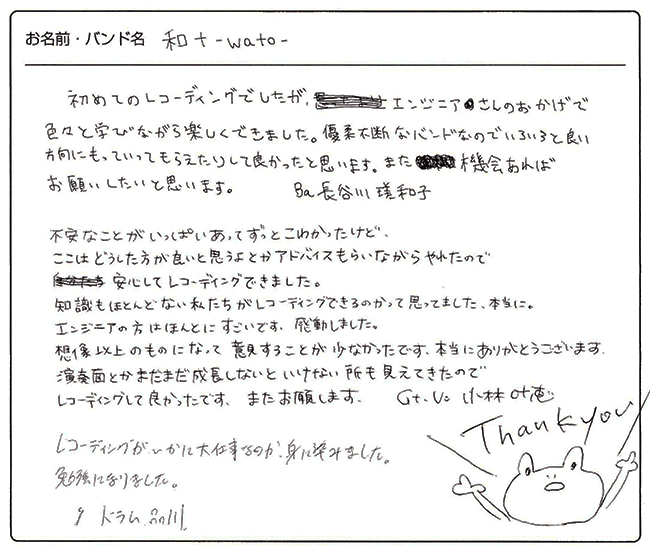 お名前・バンド名 和十-wato-
初めてのレコーディングでしたが、エンジニアさんのおかげで
色々と学びながら楽しくできました。優柔不断なバンドなのでいろいろと良い
方向にもっていってもらえたりして良かったと思います。また機会あれば
お願いしたいと思います。 Ba 長谷川瑛和子
不安なことがいっぱいあってずっとこわかったけど、
ここはどうした方が良いと思うよとかアドバイスもらいながらやれたので
安心してレコーディングできました。
知識もほとんどない私たちがレコーディングできるのかって思ってました、本当に。
エンジニアの方はほんとにすごいです、感動しました。
想像以上のものになって意見することが少なかったです、本当にありがとうございます。
演奏面とかまだまだ成長しないといけない所も見えてきたので
レコーディングして良かったです、またお願します、 Gt.Vo 小林
Thank you
レコーディングがいかに大仕事なのか、身に染みました。
勉強になりました。
ドラム 品川